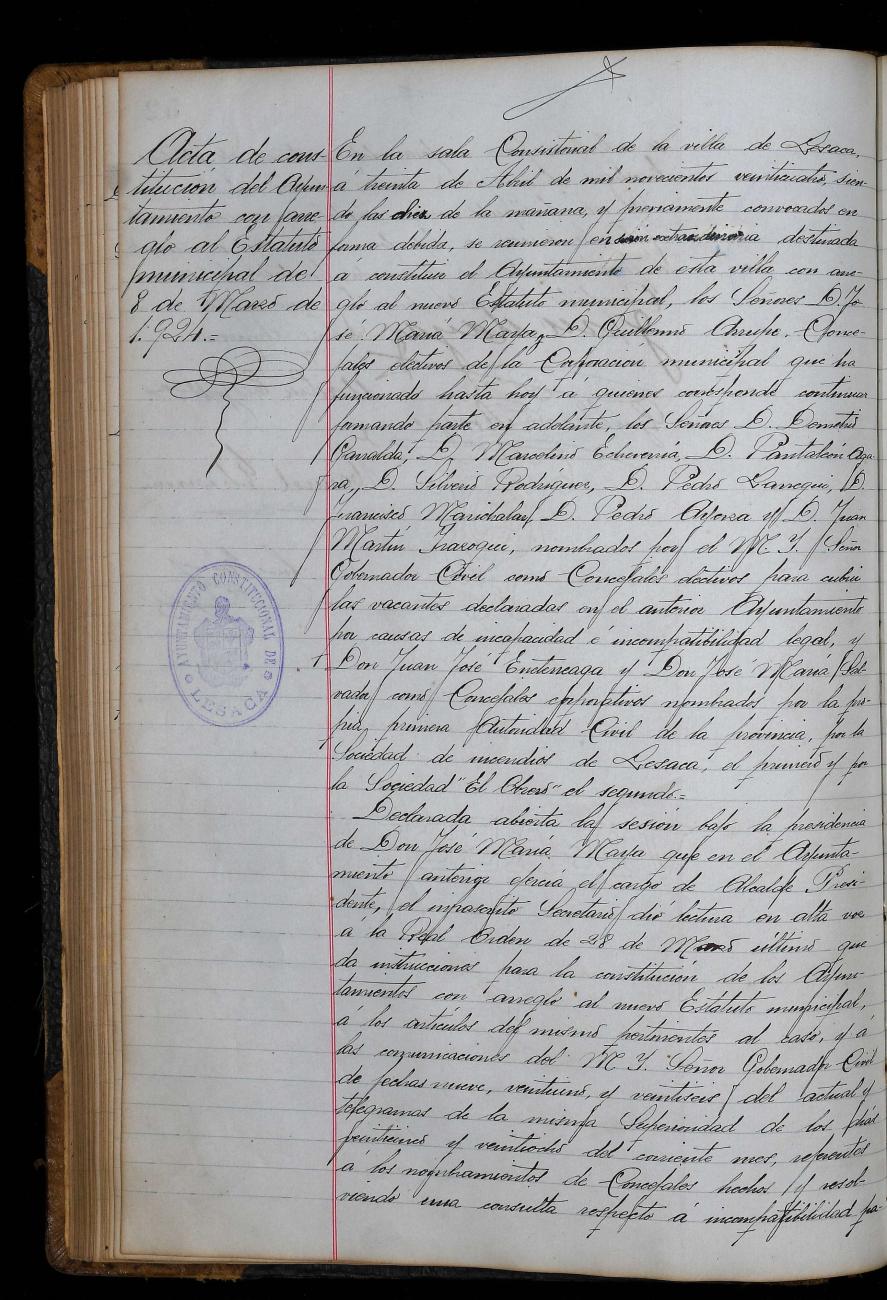 Acta de cons-
titución del Ayun-
tamiento con arre-
glo al Estatuto
municipal de
8 de Marzo de
1.924.=
AYUNTAMIENTO CONSTITUCIONAL DE
LESACA
En la sala Consistorial de la villa de Lesaca,
á treinta de Abril de mil novecientos veinticuatro, sien-
do las diez de la mañana, y previamente convocados en
forma debida, se reunieron en sesión extraordinaria destinada
á constituir el Ayuntamiento de esta villa con arre-
glo al nuevo Estatuto municipal, los Señores D. Jo-
sé María Marya, D. Guillermo Arrupe, Conce-
jales electivos de la Corporacion municipal que ha
funcionado hasta hoy á quienes corresponde continuar
formando parte en adelante, los Señores D. Demetrio
Garralda, D. Marcelino Echeverría, D. Pantaleón
D. Silverio Rodríguez, D. Pedro Larregui, D.
Francisco Marichalar, D. Pedro Ayerza y D. Juan
Martín Irazoqui, nombrados por el M. Y. Señor
Gobernador Civil como Concejales electivos para cubrir
las vacantes declaradas en el anterior Ayuntamiento
por causas de incapacidad é incompatibilidad legal, y
Don Juan José Endeneaga y Don José María Sal-
vador como Concejales corporativos nombrados por la pro-
pia primera Autoridad Civil de la provincia, por la
Sociedad de incendios de Lesaca, el primero y por
la Sociedad "El Obrero" el segundo.=
Declarada abierta la sesion bajo la presidencia
de Don José María Marya que en el Ayunta-
miento anterior ejercía el cargo de Alcalde Presi-
dente, el infrascrito Secretario dió lectura en alta voz
a la Real Orden de 28 de Marzo último que
da instrucciones para la constitución de los Ayun-
tamientos con arreglo al nuevo Estatuto municipal,
á los artículos del mismo pertinentes al caso, y á
las comunicaciones del M. Y. Señor Gobernador Civil
de fechas nueve, veintiuno, y veintiseis del actual y
telegramas de la misma Superioridad de los días
veinticinco y veintiocho del corriente mes, referentes
á los nombramientos de Concejales hechos y resol-
viendo una consulta respecto á incompatibilidad pa-